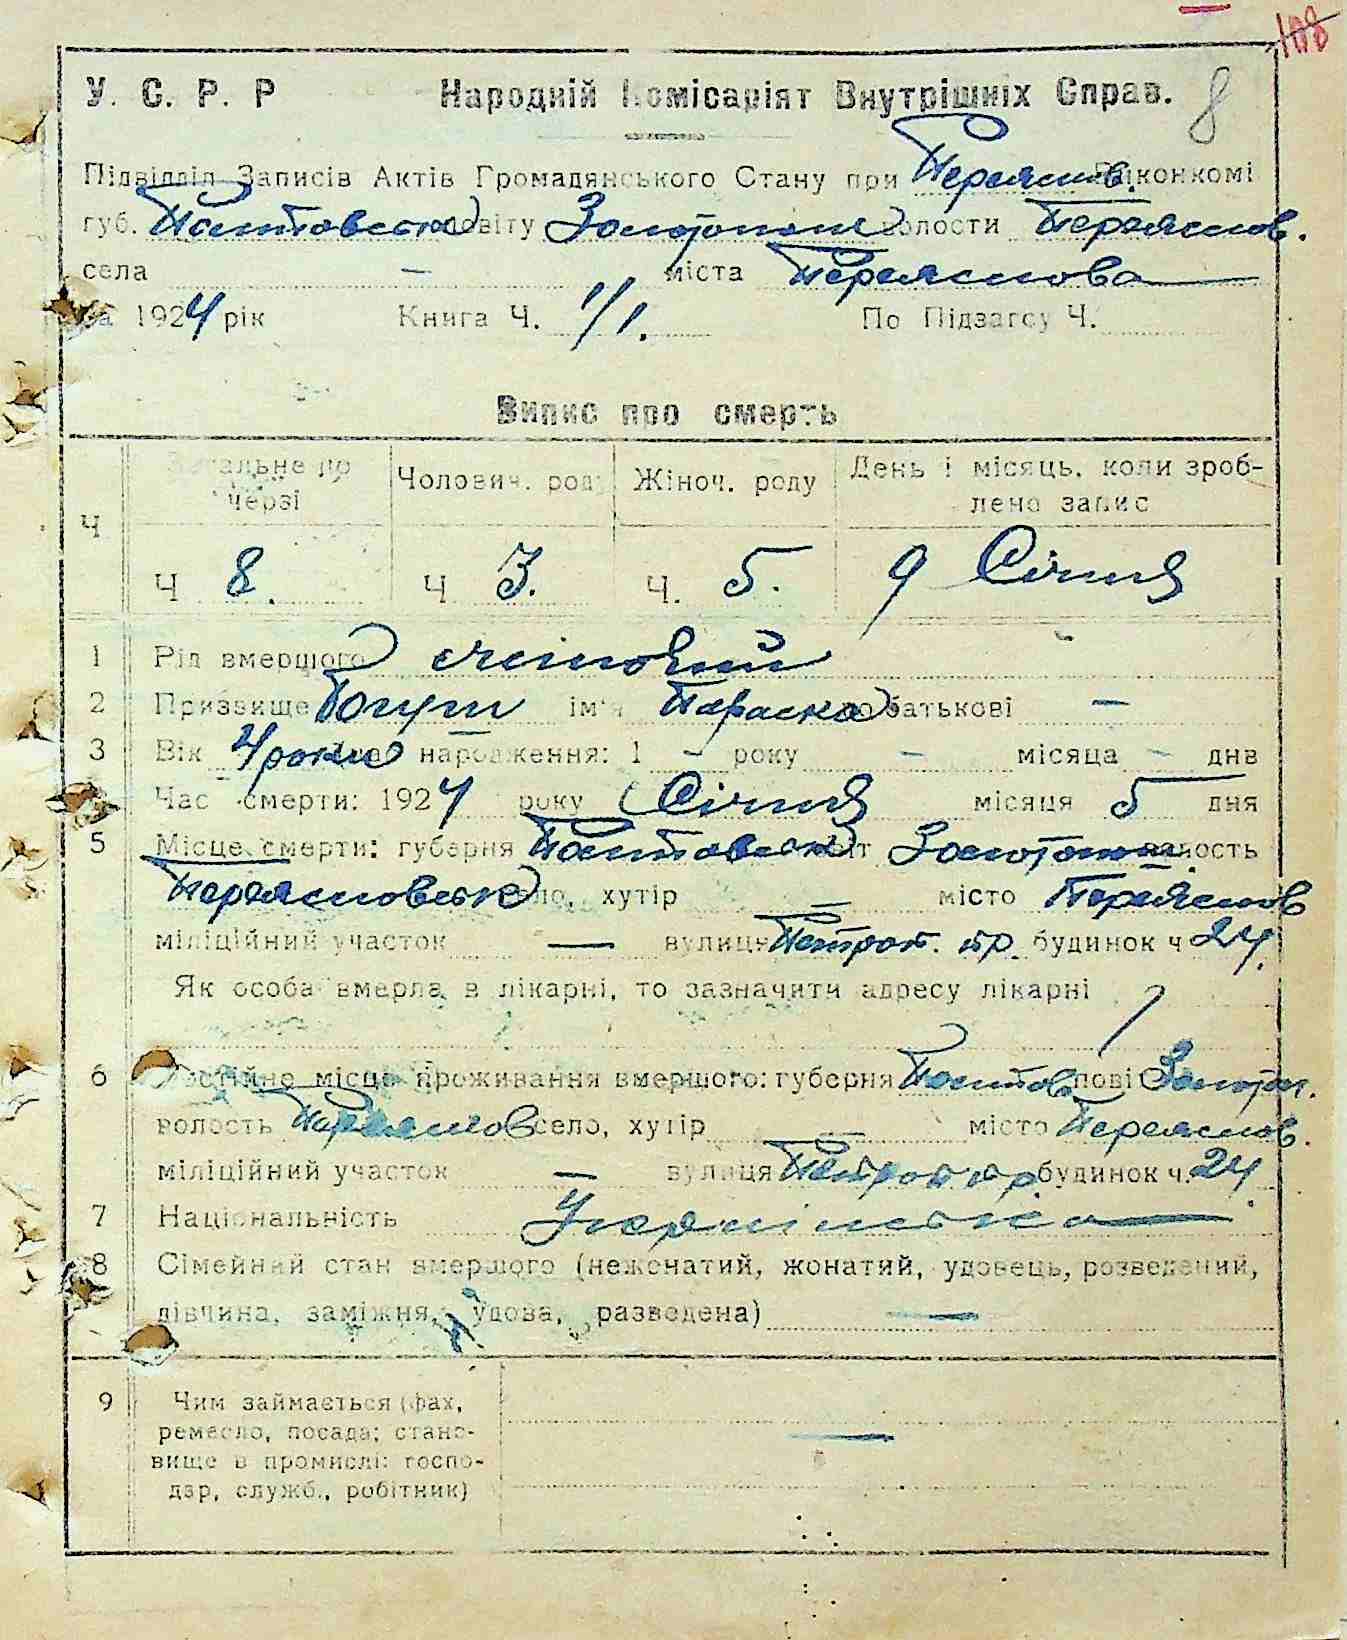 108
8
У. С. Р. Р Народній Комісаріят Внутрішніх Справ.
Підвідділ Записів Актів Громадянського Стану при Переяслів. Виконкомі
губ. Полтавської повіту Золотоніськ волости Переяслов.
села — міста Переяслова
на 1924 рік Книга Ч. 1/1. По Підзагсу Ч.
Випис про смерть
Ч Загальне по черзі Чолович. роду Жіноч. роду День і місяць, коли зроб-
лено запис
Ч 8. Ч 3. Ч. 5. 9 Січня
1 Рід вмершого жіночий
2 Призвище ім'я Параска по батькові —
3 Вік 4 роки Час народження: 1 — року — місяца — дня
4 Час смерти: 1924 року Січня місяця 5 дня
5 Місце смерти: губерня Полтавська повіт Золотоніськ волость
Переясловська село, хутір — місто Переяслов
міліційний участок — вулиця Петров. пр. будинок ч 24.
Як особа вмерла в лікарні, то зазначити адресу лікарні
6 Постійне місце проживання вмершого: губерня Полтав. повіт Золотон.
волость Переяслов село, хутір — місто Переяслов.
міліційний участок — вулиця Петров пр. будинок ч. 24
7 Національність Українська
8 Сімейний стан вмершого (неженатий, жонатий, удовець, розведений,
дівчина, заміжня, удова, разведена) —
9 Чим займається (фах,
ремесло, посада; стано-
вище в промислі: госпо-
дар, служб., робітник) —